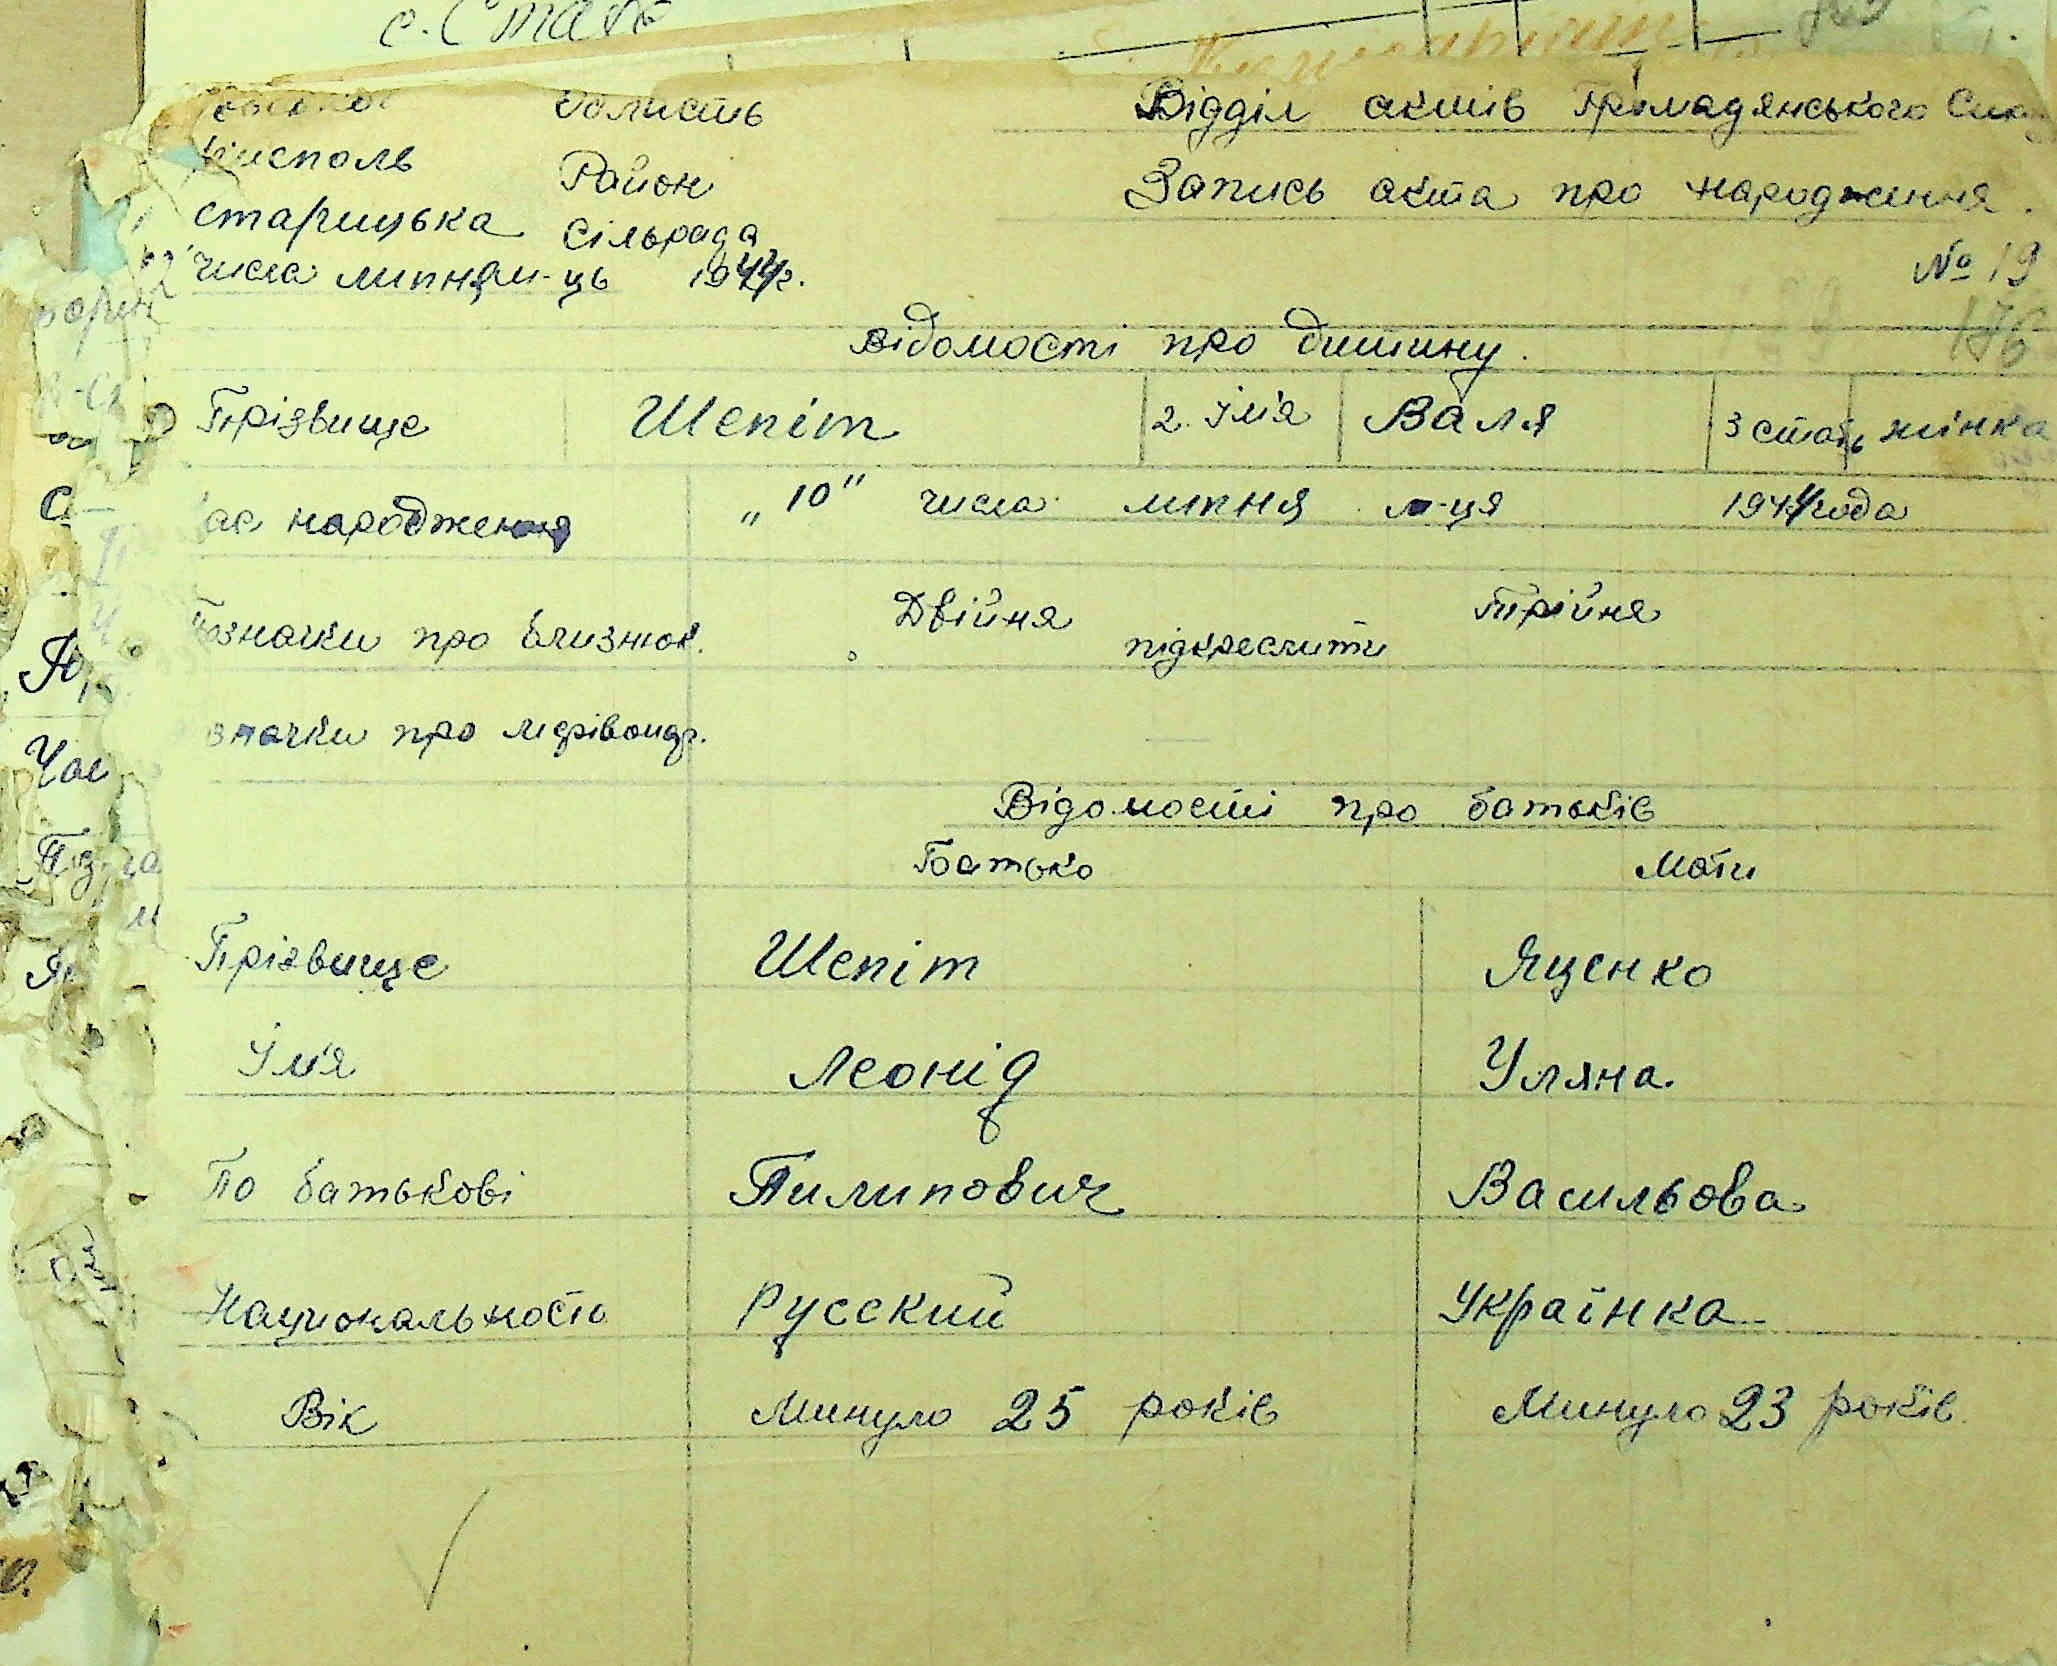 с. Стар
область Відділ актів Громадянського
Район Запись акта про народження.
старицька сільрада
числа липня м-ць 1944г. № 19
176
Відомості про дитину.
Прізвище Шепіт 2. Імя Валя 3 стать жінка
ас народження „10" числа липня м-ця 1944 года
значки про близнюк. Двійня підкреслити Трійня
значки про
Відомості про батьків
Батько Мати
Прізвище Шепіт Яценко
Імя Леонід Уляна.
По батькові Пилипович Васильова
Национальность Русский Українка
Вік Минуло 25 років Минуло 23 років